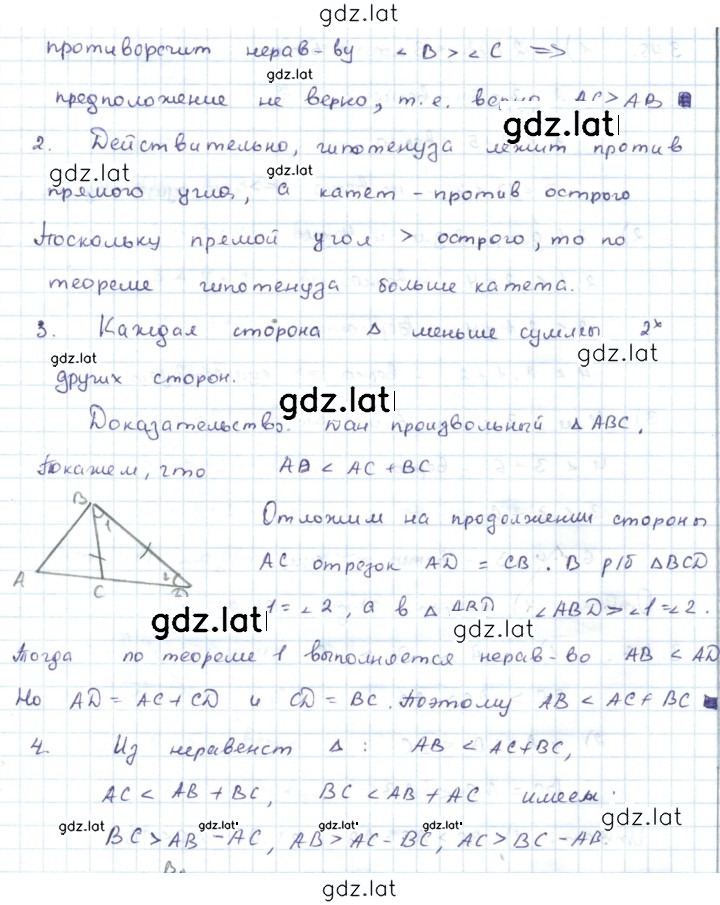 gdz.lat
противоречит нерав-ву ∠B > ∠C =>
gdz.lat
предположение не верно, т.е. AC > AB
gdz.lat
2. Действительно, гипотенуза лежит против
gdz.lat
прямого угла, а катет - против острого
Поскольку прямой угол > острого, то по
теореме гипотенуза больше катета.
3. Каждая сторона Δ меньше суммы 2х
gdz.lat
gdz.lat
других сторон.
gdz.lat
Доказательство. Дан произвольный Δ ABC.
Покажем, что AB < AC + BC
B
1
A
C
2
D
Отложим на продолжении стороны
AC отрезок AD = CB. В р/б ΔBCD
1 = ∠2, а в Δ ABD ∠ABD > ∠1 = ∠2.
gdz.lat
gdz.lat
Тогда по теореме 1 выполняется нерав-во AB < AD
Но AD = AC + CD и CD = BC. Поэтому AB < AC + BC
4. Из неравенст Δ: AB < AC + BC,
AC < AB + BC, BC < AB + AC имеем:
gdz.lat
gdz.lat
gdz.lat
gdz.lat
gdz.lat
BC > AB - AC, AB > AC - BC, AC > BC - AB.
gdz.lat